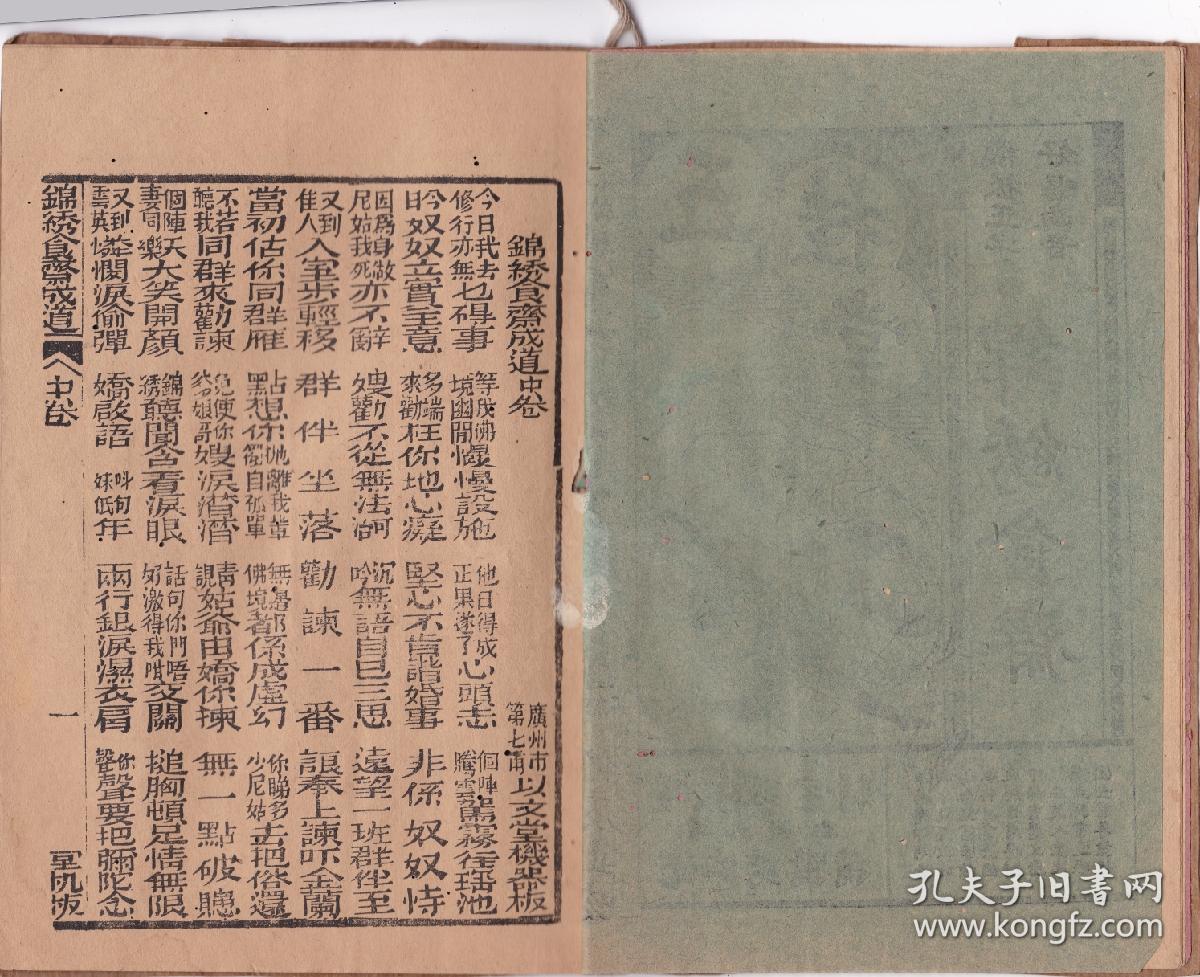 錦綉食齋成道中卷 廣州市第七甫以文堂機器板
今日我去修行亦無乜碍事 等成佛境幽閒慢慢設施 他日得成正果遂了心頭志 個陣騰雲駕霧往瑤池
今日奴奴立實主意 多端來勸枉你地心癡 堅心不肯諧婚事 非係奴奴恃
因為身做尼姑我死亦不辭 嫂勸不從無法 沉吟無語自己三思 遠望一班群伴至
又到佳人入室步輕移 群伴坐落 勸諫一番 奉上諫吓金蘭
當初估你同群雁 點想你拋離我輩獨自孤單 佛境都係成虛幻 你睇多少尼姑去把俗還
不若聽我同群來勸諫 免使你爹娘哥嫂淚潸潸 姑爺由嬌你揀 無一點破
個陣夫妻同樂大笑開顏 錦綉聽聞含着淚眼 話句你們唔好激得我咁交關 搥胸頓足情無限
又到雲英憐憫淚偷彈 嬌啟語 叫句妹低年 兩行銀淚濕衣肩 你聲聲要把彌陀念
錦綉食齋成道 中卷 一 机板
孔夫子旧书网
www.kongfz.com